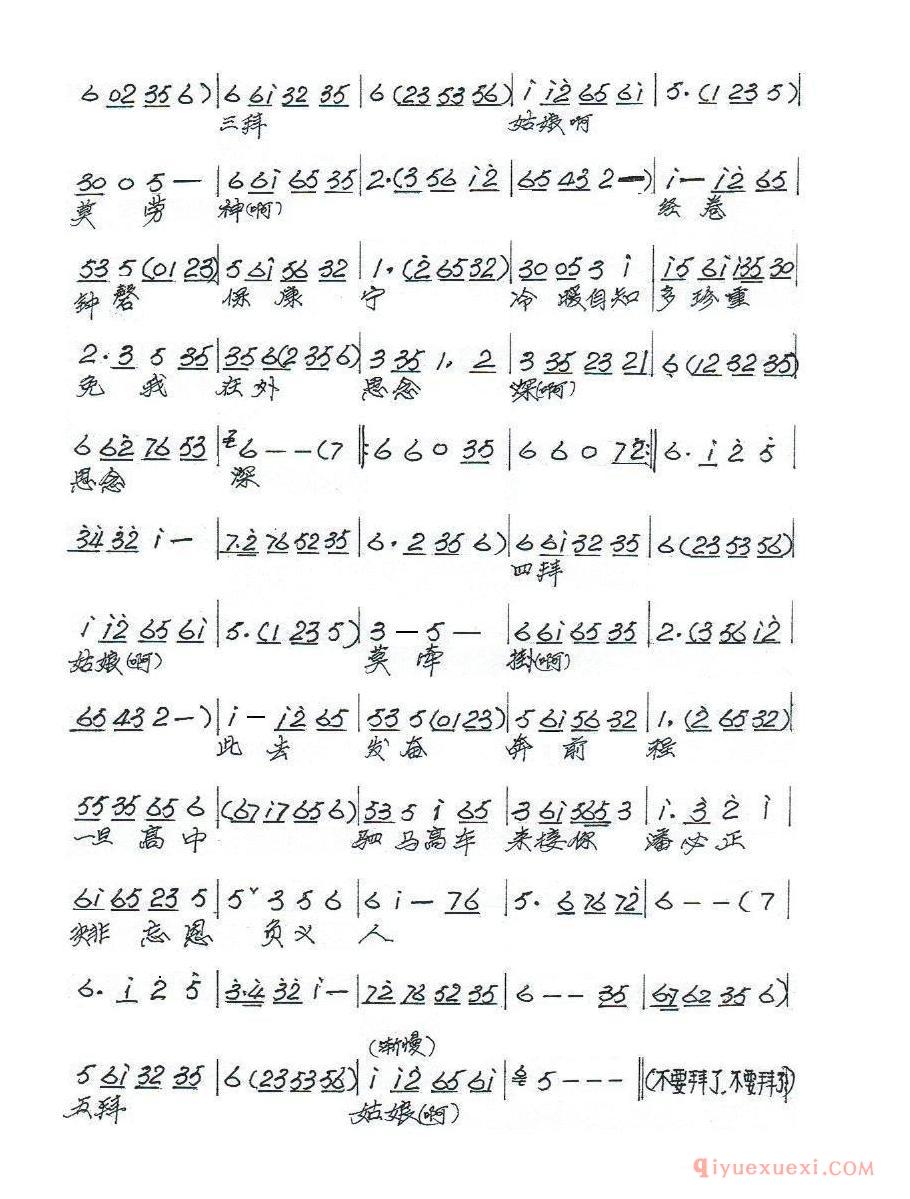 6 02 35 6) | 6 6i 32 35 | 6 (23 53 56) | i i2 65 6i | 5. (1 23 5) |
三拜 姑娘啊
30 0 5 — | 6 6i 65 35 | 2. (3 56 i2 | 65 43 2 —) | i — i2 65 |
莫 劳 神(啊) 经 卷
53 5 (01 23) | 5 6i 56 32 | 1. (2 65 32) | 30 05 3 i | i5 6i i35 30
钟 磬 保 康 宁 冷 暖自知 多珍重
2. 3 5 35 | 35 6 (2 35 6) | 3 35 1. 2 | 3 35 23 21 | 6 (12 32 35)
免 我 在外 思念 深(啊)
6 62 76 53 | 6 - - (7 ‖: 6 6 0 35 | 6 6 0 72 :‖ 6. i 2 5 |
思念 深
34 32 i — | 7.2 76 52 35 | 6. 2 35 6) | 6 6i 32 35 | 6 (23 53 56)
四拜
i i2 65 6i | 5. (1 23 5) | 3 — 5 — | 6 6i 65 35 | 2. (3 56 i2 |
姑娘(啊) 莫 牵 掛(啊)
65 43 2 —) | i — i2 65 | 53 5 (01 23) | 5 6i 56 32 | 1. (2 65 32)
此 去 发 奋 奔 前 程
55 35 65 6 | (67 i7 65 6) | 53 5 i 65 | 3 6i 565 3 | i. 3 2 i |
一旦 高 中 驷 马高车 来接你 潘必正
6i 65 23 5 | 5 ˅ 3 5 6 | 6 i — 76 | 5. 6 76 72 | 6 - - (7 |
决非 忘 恩 负 义 人
6. i 2 5 | 3.4 32 i — | 72 76 52 35 | 6 - - 35 | 67 62 35 6)
(渐慢)
5 6i 32 35 | 6 (23 53 56) | i i2 65 6i | 5 - - - ‖ (不要拜了,不要拜了)
五拜 姑娘(啊)
qiyuexuexi.com